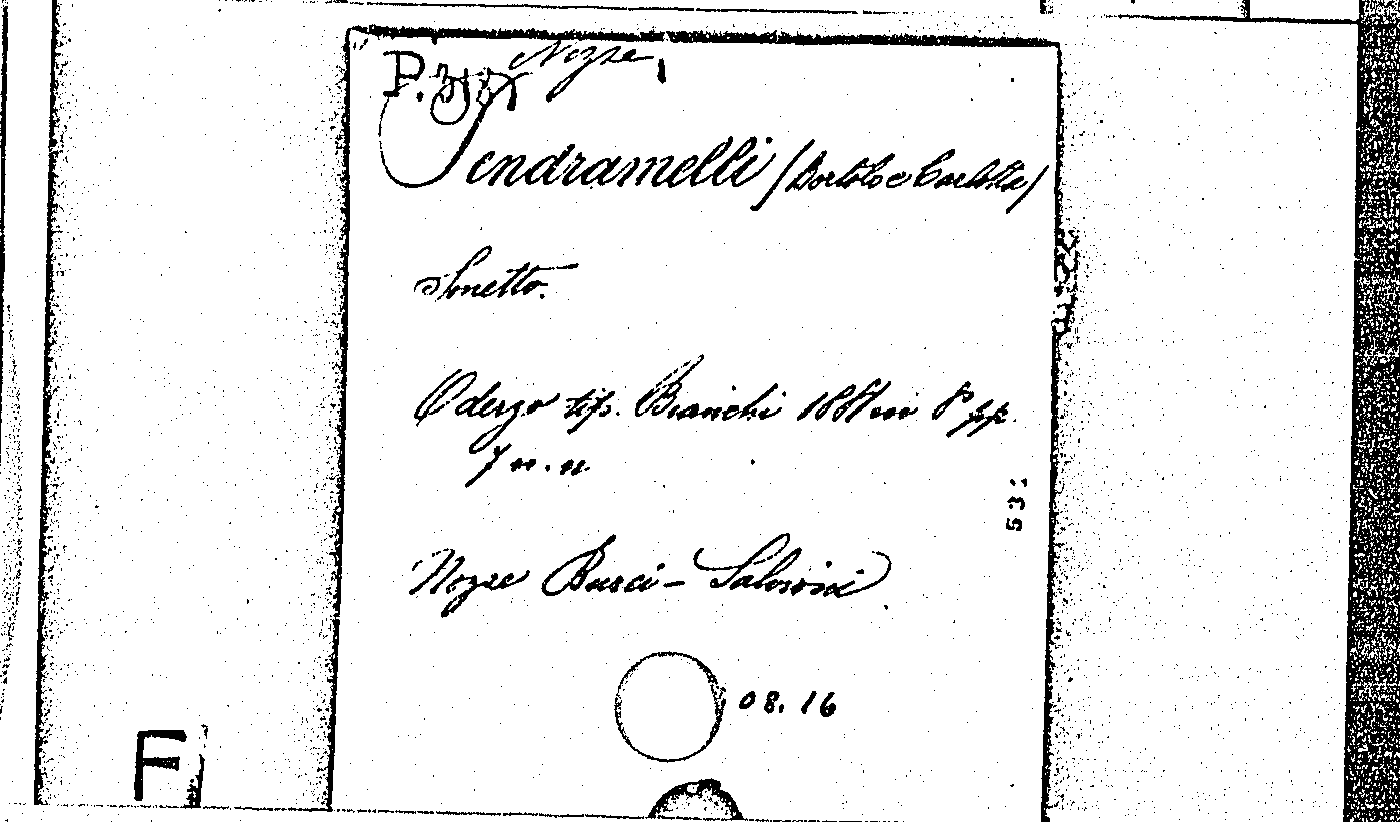 Nozze
P.
Tendramelli (Bortolo e Carlotta)
Sonetto.
Oderzo tip. Bianchi 1887 in 8° pp.
7 n. n.
531
Nozze Busci - Salvini
08.16
F